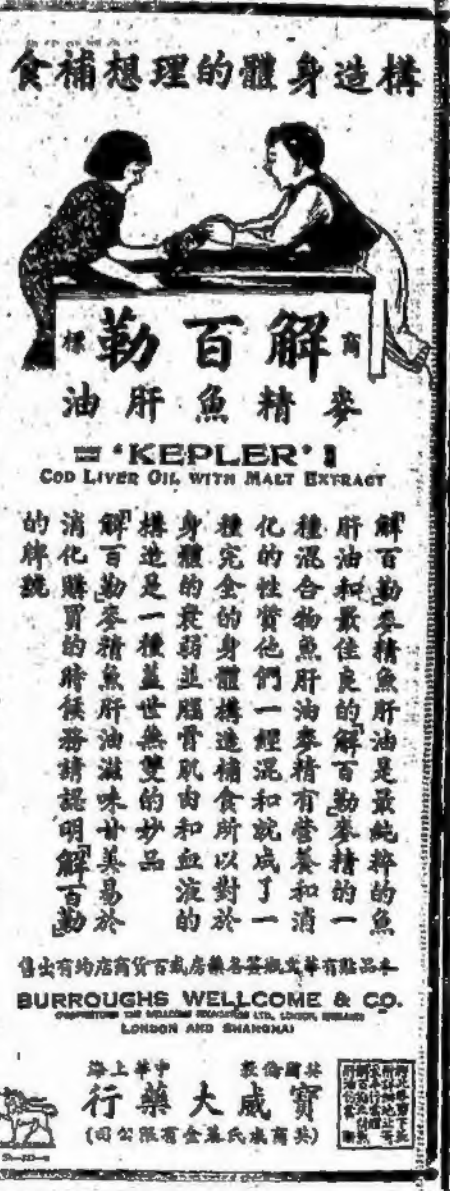 構造身體的理想補食
商標
解百勒
麥精魚肝油
'KEPLER'
COD LIVER OIL WITH MALT EXTRACT
「解百勒」麥精魚肝油是最純粹的魚
肝油和最佳良的「解百勒」麥精的一
種混合物魚肝油麥精有營養和消
化的性質他們一經混和就成了一
種完全的身體構造補食所以對於
身體的衰弱並腦骨肌肉和血液的
構造是一種蓋世無雙的妙品
「解百勒」麥精魚肝油滋味甘美易於
消化購買的時候務請認明「解百勒」
的牌號
本品貼有華文瓶簽各藥房或百貨商店均有出售
BURROUGHS WELLCOME & CO.
LONDON AND SHANGHAI
英國倫敦 中華上海
寶威大藥行